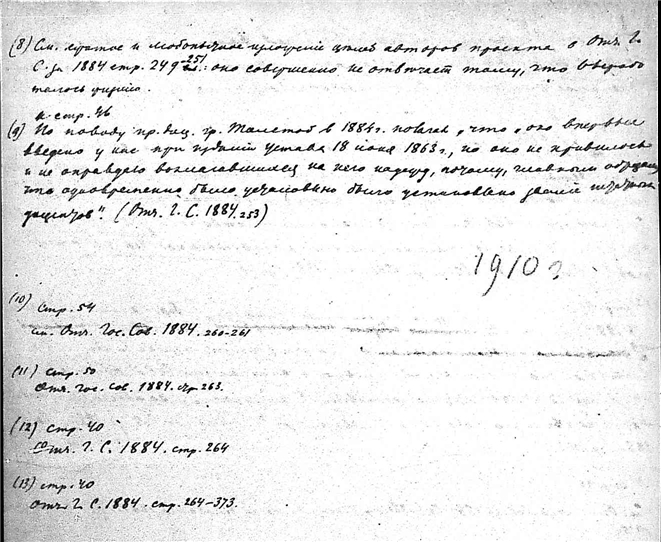 (8) См. краткое и любопытное изложение целей авторов проекта в Отч. Г.
С. за 1884 стр. 249-251: оно совершенно не отвечает тому, что
к стр. 46
(9) По поводу пр. доц. гр. Толстой в 1884 г. что "оно впервые
введено у нас при издании устава 18 июня 1863 г., но оно не привилось
и не оправдало возлагавшихся на него надежд, потому, главным образом,
что одновременно было установлено званий штатных
доцентов". (Отч. Г. С. 1884. 253)
1910 г
(10) стр. 54
см. Отч. Гос. Сов. 1884. 260-261
(11) стр. 50
Отч. Гос. Сов. 1884. стр 263.
(12) стр. 40
Отч. Г. С. 1884. стр. 264
(13) стр. 40
Отч. Г. С. 1884. стр. 264-373.